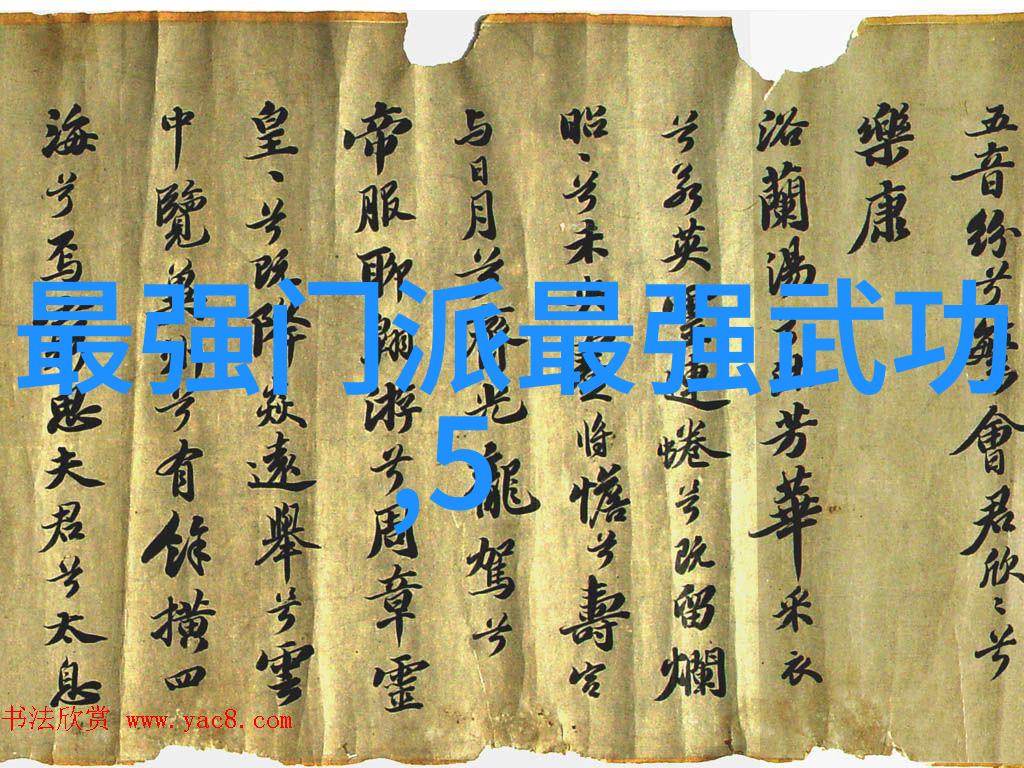 五音紛兮繁會君欣〻兮
樂康
浴蘭湯兮沐芳華采衣
兮若英靈連蜷兮既留爛
昭〻兮未央蹇將憺兮壽宮
与日月兮齊光龍駕兮
帝服聊翱游兮周章靈
皇〻兮既降猋遠舉兮雲
中覽冀州兮有餘橫四
海兮焉窮思夫君兮太息
最强门派最强武功
,5
书法欣赏 www.yac8.com